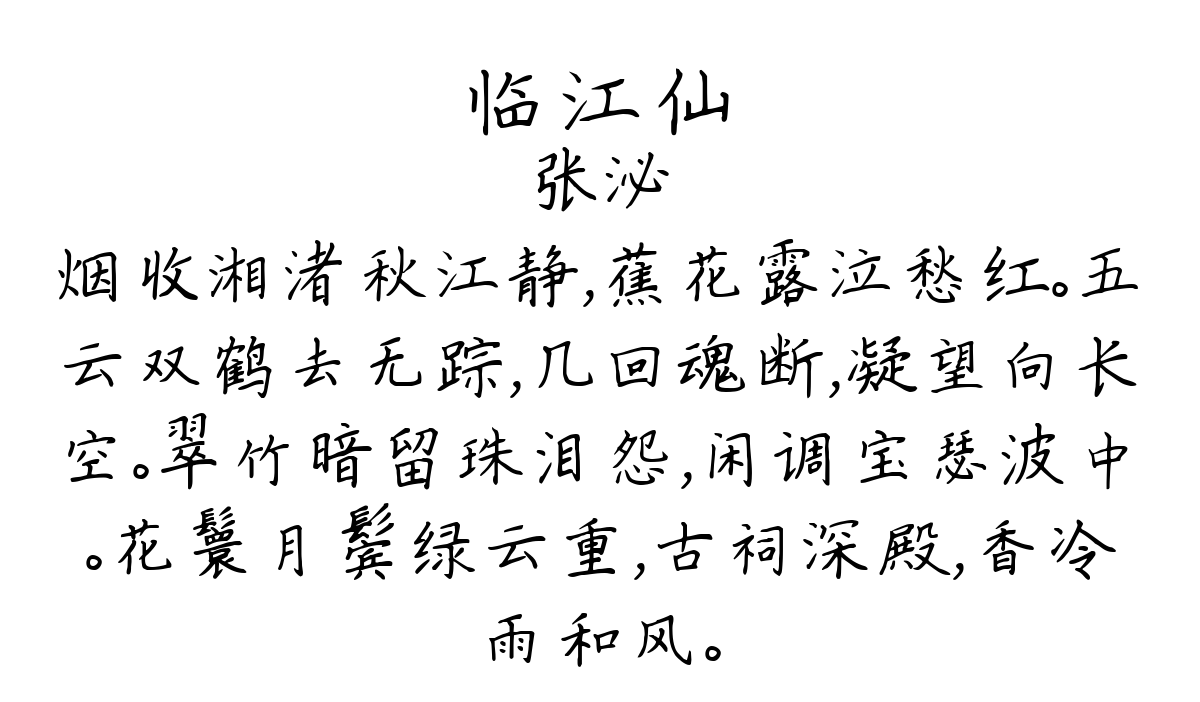 临江仙
张泌
烟收湘渚秋江静,蕉花露泣愁红。五
云双鹤去无踪,几回魂断,凝望向长
空。翠竹暗留珠泪怨,闲调宝瑟波中
。花鬟月鬓绿云重,古祠深殿,香冷
雨和风。